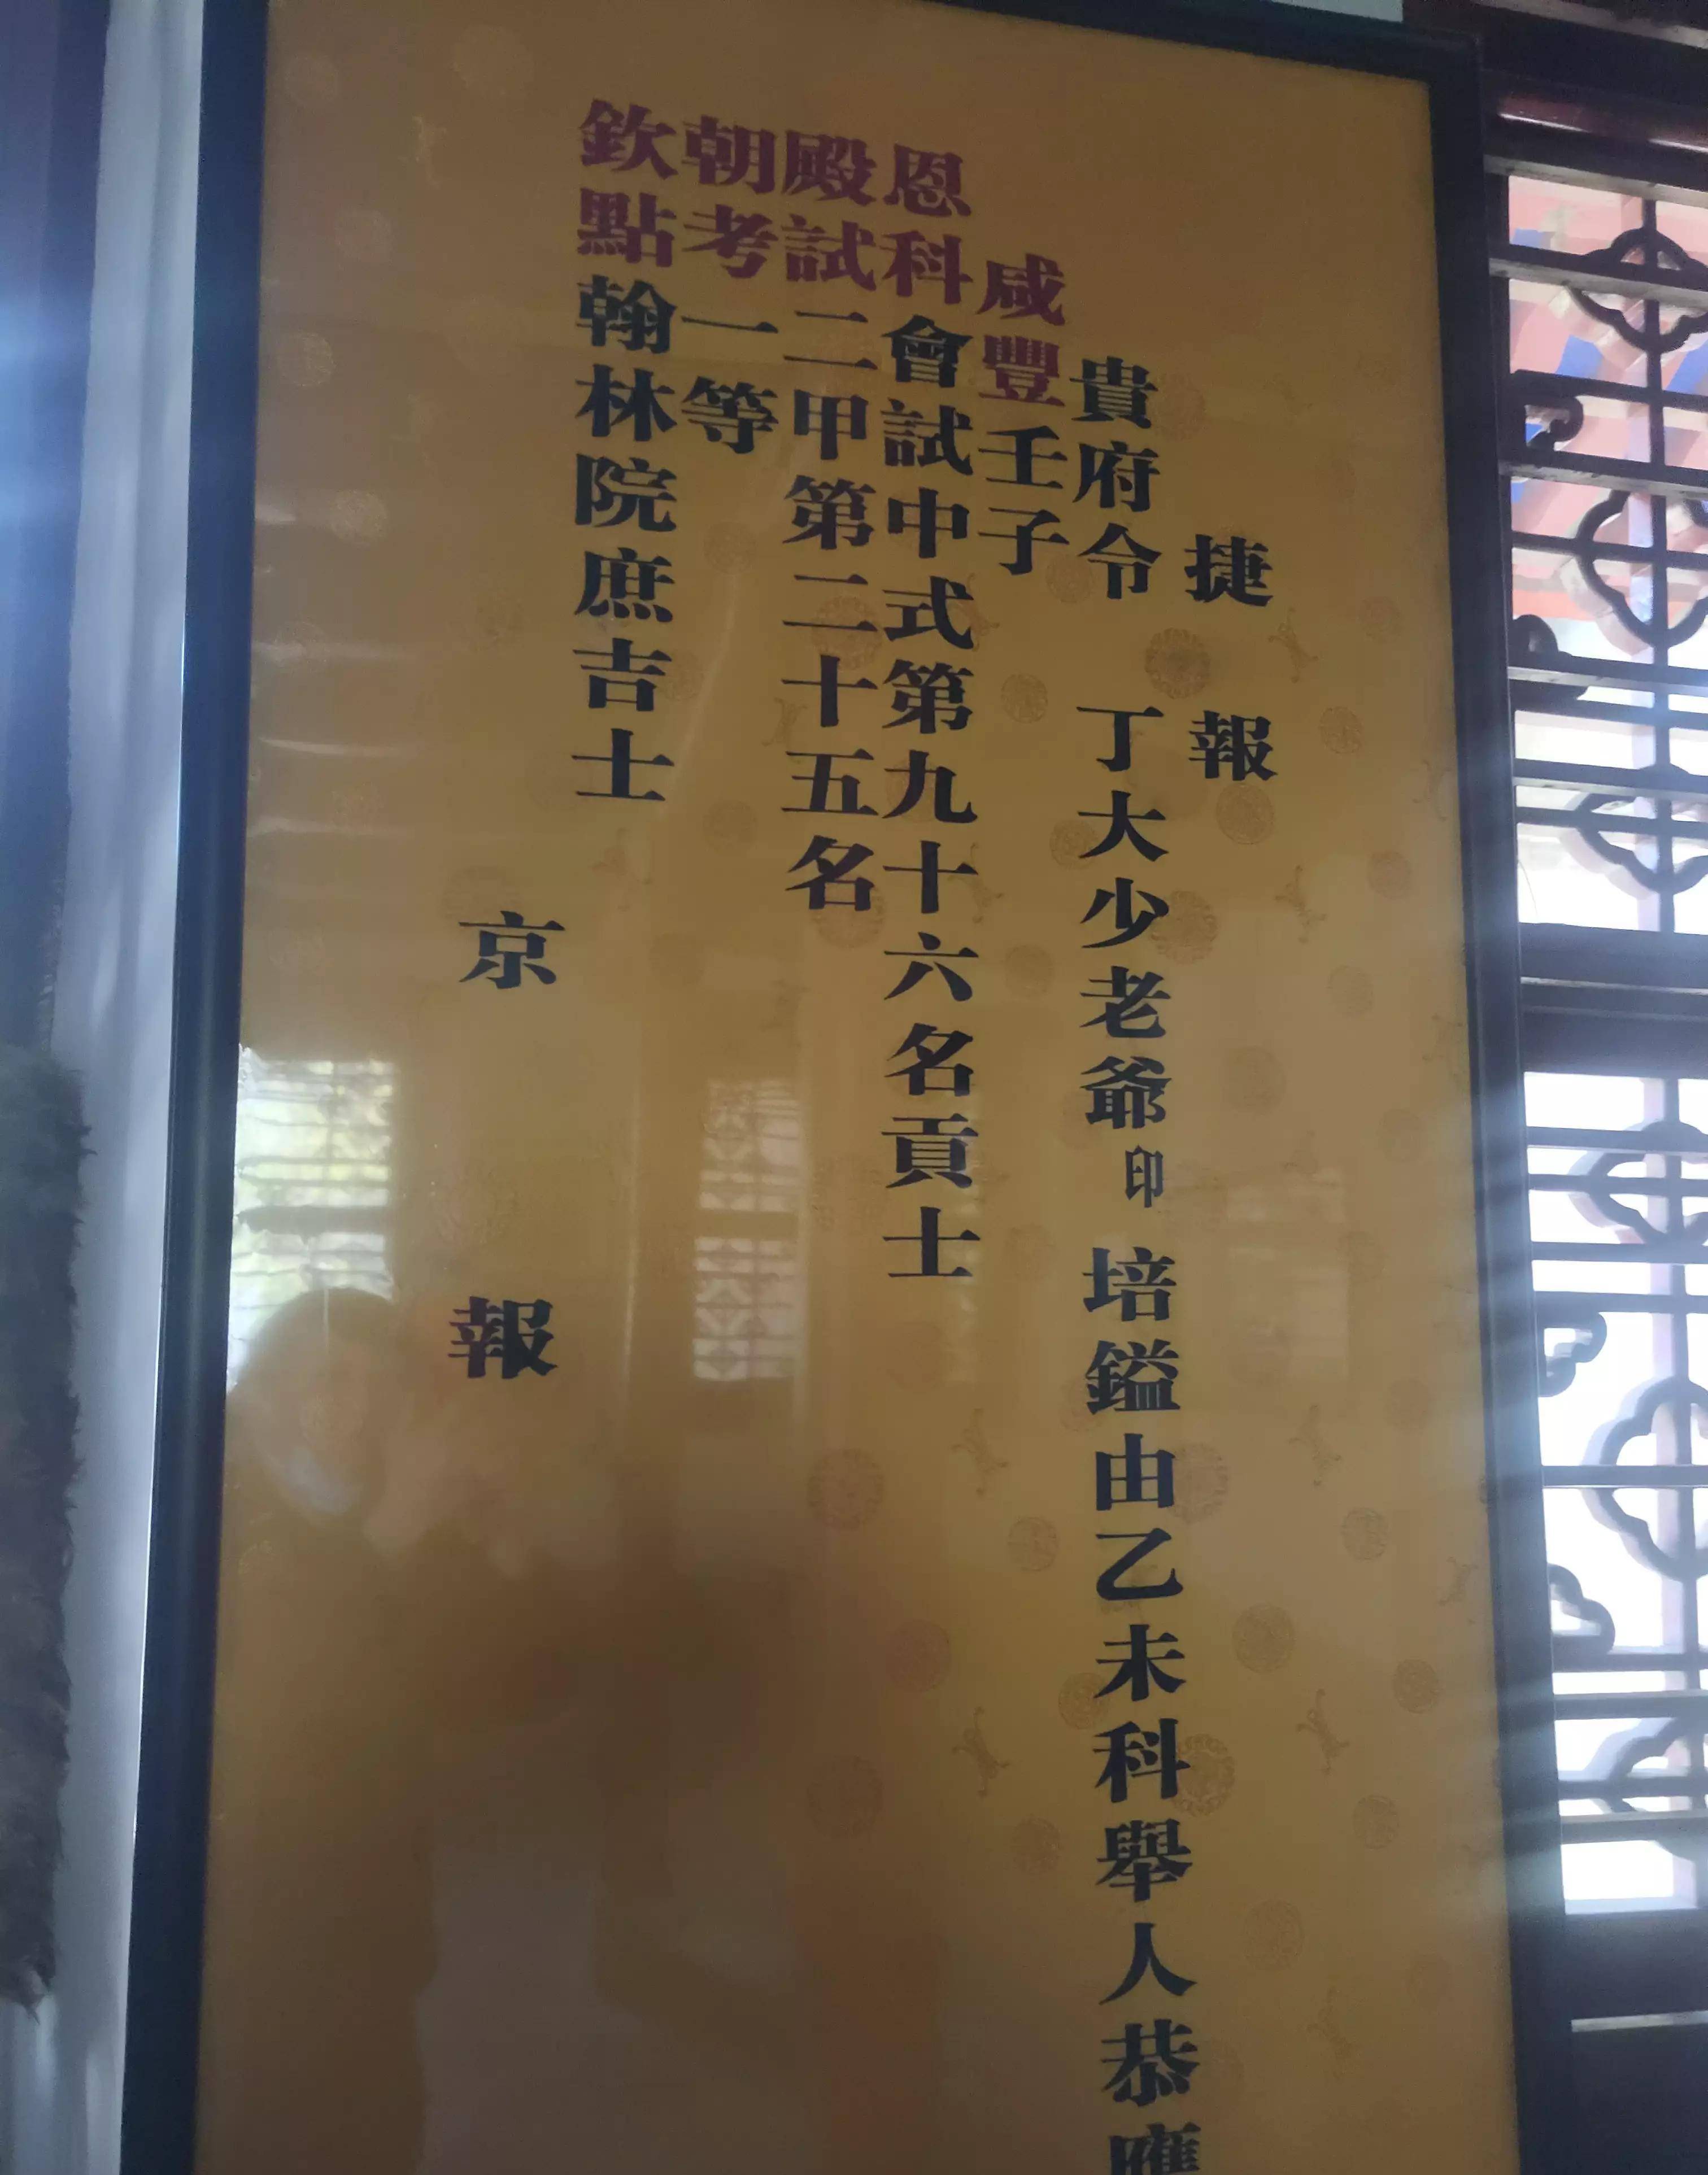 捷報
貴府令 丁大少老爺印培鎰由乙未科舉人恭應
咸豐壬子
恩科會試中式第九十六名貢士
殿試二甲第二十五名
朝考一等
欽點翰林院庶吉士
京報